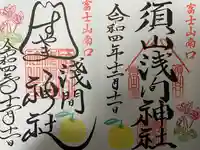 富士山南口
須山浅间神社
令和四年十二月十二日
富士山南口
浅間
神社
令和四年十二月十二日